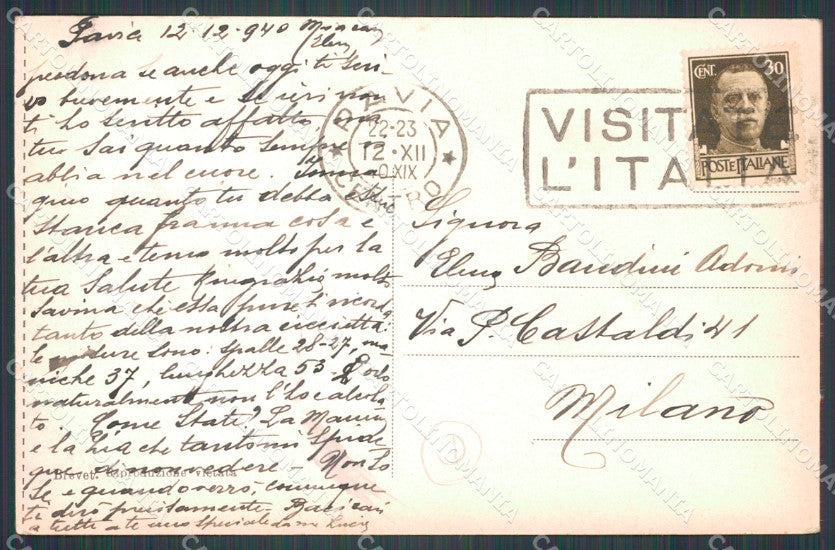 Pavia 12-12-940
Elena
perdona se anche oggi ti scri-
vo brevemente e se ieri non
ti ho scritto affatto, ma
tu sai quanto sempre ti
abbia nel cuore.
gino quanto tu debba
stanca fra una cosa e
l'altra e temo molto per la
tua salute Ringrazio molto
Savina che essa pure ti ricorda
tanto della nostra
le misure sono: spalle 28-27, ma-
niche 37, lunghezza 53
naturalmente non l'ho calcola-
to. Come State? La Mamma
e la zia che tanto mi
di rivedere - Non so
se e quando verrò, comunque
ti dirò Bacioni
a tutti a te uno speciale da
Brevet. Riproduzione vietata
PAVIA
22-23
12·XII
0 XIX
CENTRO
VISITATE
L'ITALIA
CENT. 30
POSTE ITALIANE
Signora
Elena Bandini Adorni
Via P. Castaldi 41
Milano
CARTOLINOMANIA